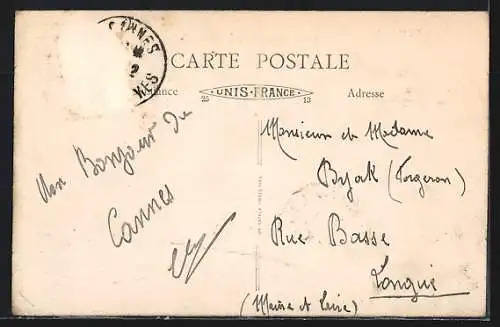 CANNES
CARTE POSTALE
UNIS-FRANCE
25 13
Adresse
Un Bonjour de
Cannes
Monsieur et Madame
(Forgeron)
Rue Basse
Longué
(Maine et Loire)